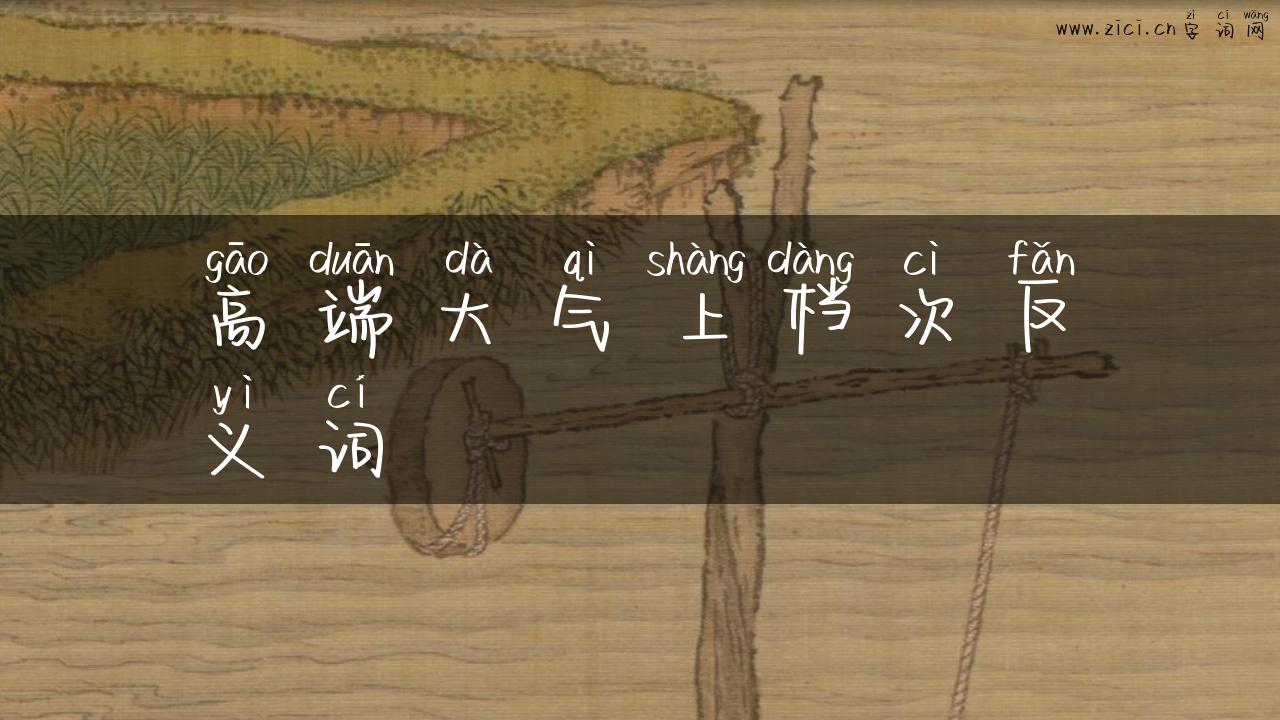 zì cí wǎng
www.zici.cn 字词网
gāo duān dà qì shàng dàng cì fǎn
高端大气上档次反
yì cí
义词